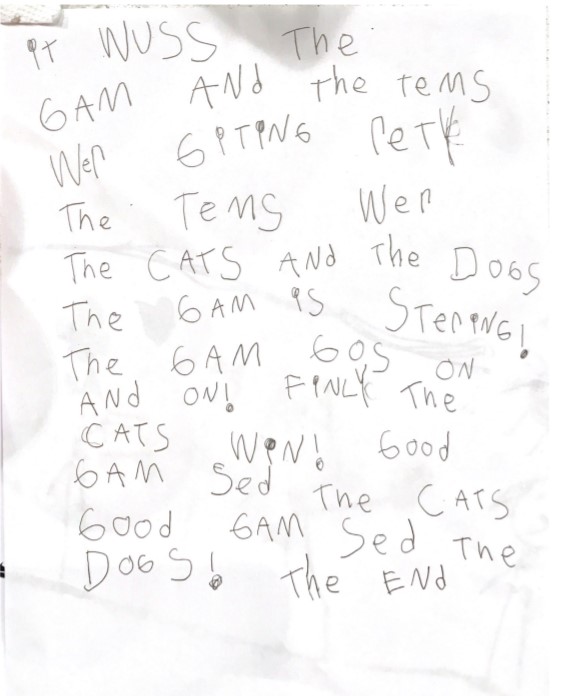 it WUSS The
GAM ANd the teMS
Wer GiTiNG reTy
The TeMS Wer
The CATS ANd The DoGS
The GAM iS STeriNG!
The GAM GOS ON
ANd ON! FiNLY The
CATS WiN! Good
GAM Sed The CATS
Good GAM Sed The
DOGS! The ENd